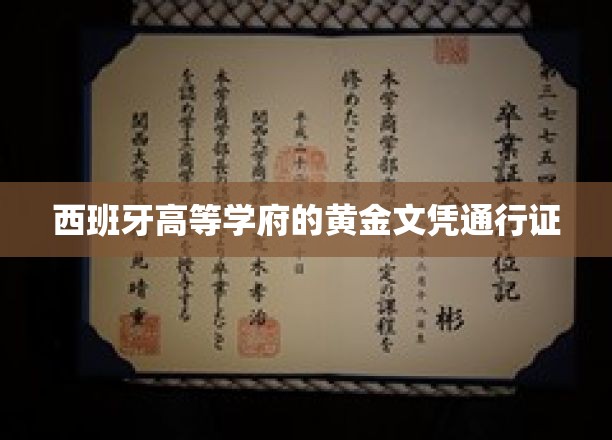 西班牙高等学府的黄金文凭通行证
第三七七五四
卒業証書 位記
谷 彬
本学商学部商 所定の課程を
修めたことを
平成二十 十日
関西大学商学 木孝治
本学商学部長 卒業したこと
を認め学士(商学) を授与する
関西大学 見晴重